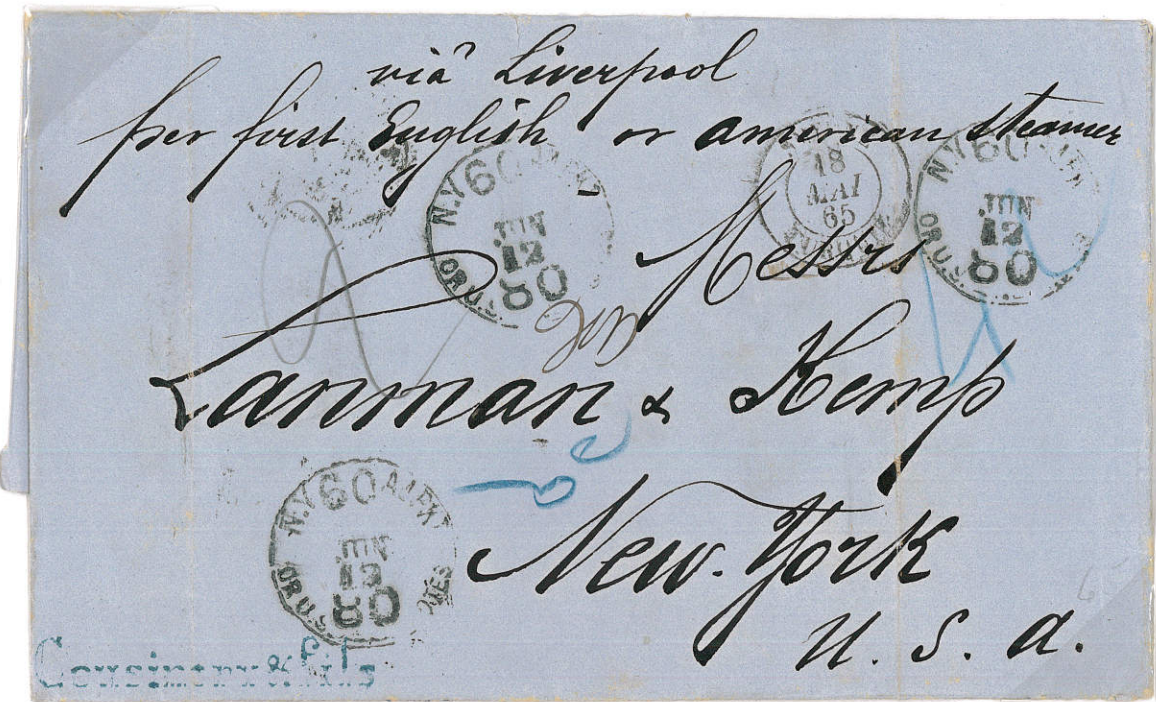 viâ Liverpool
per first English or american steamer
N.Y. 60 AM. PKT.
JUN
12
80
OR U.S.
18
MAI
65
N.Y. 60 AM. PKT.
JUN
12
80
OR U.S.
Messrs
Lanman & Kemp
New-York
U. S. A.
N.Y. 60 AM. PKT.
JUN
12
80
OR U.S. NOTES
Cousinery & fils